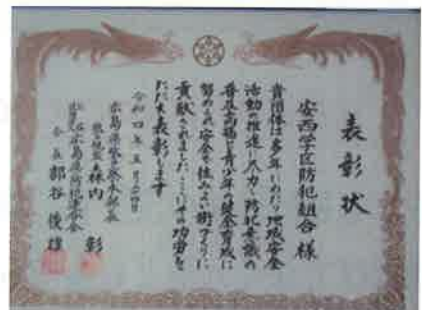 表彰状
安西学区防犯組合 様
貴団体は多年にわたり地域安全
活動の推進に尽力し防犯意識の
普及高揚と青少年の健全育成に
努められ安全で住みよい街づくりに
貢献されました ここにその功労を
たたえ表彰します
令和四年五月二十四日
広島県警察本部長
警視監 森内 彰
広島県防犯連合会
会長 部谷 俊雄